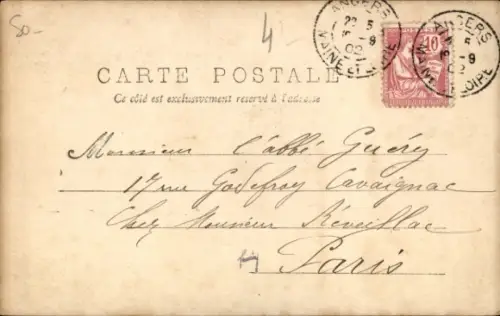 50-
4
ANGERS
22 5
02
MAINE ET LOIRE
10
ANGERS
02
MAINE ET LOIRE
CARTE POSTALE
Ce côté est exclusivement réservé à l'adresse
Monsieur l'abbé Guéry
17 rue Godefroy Cavaignac
Chez Monsieur Réveillac
Paris